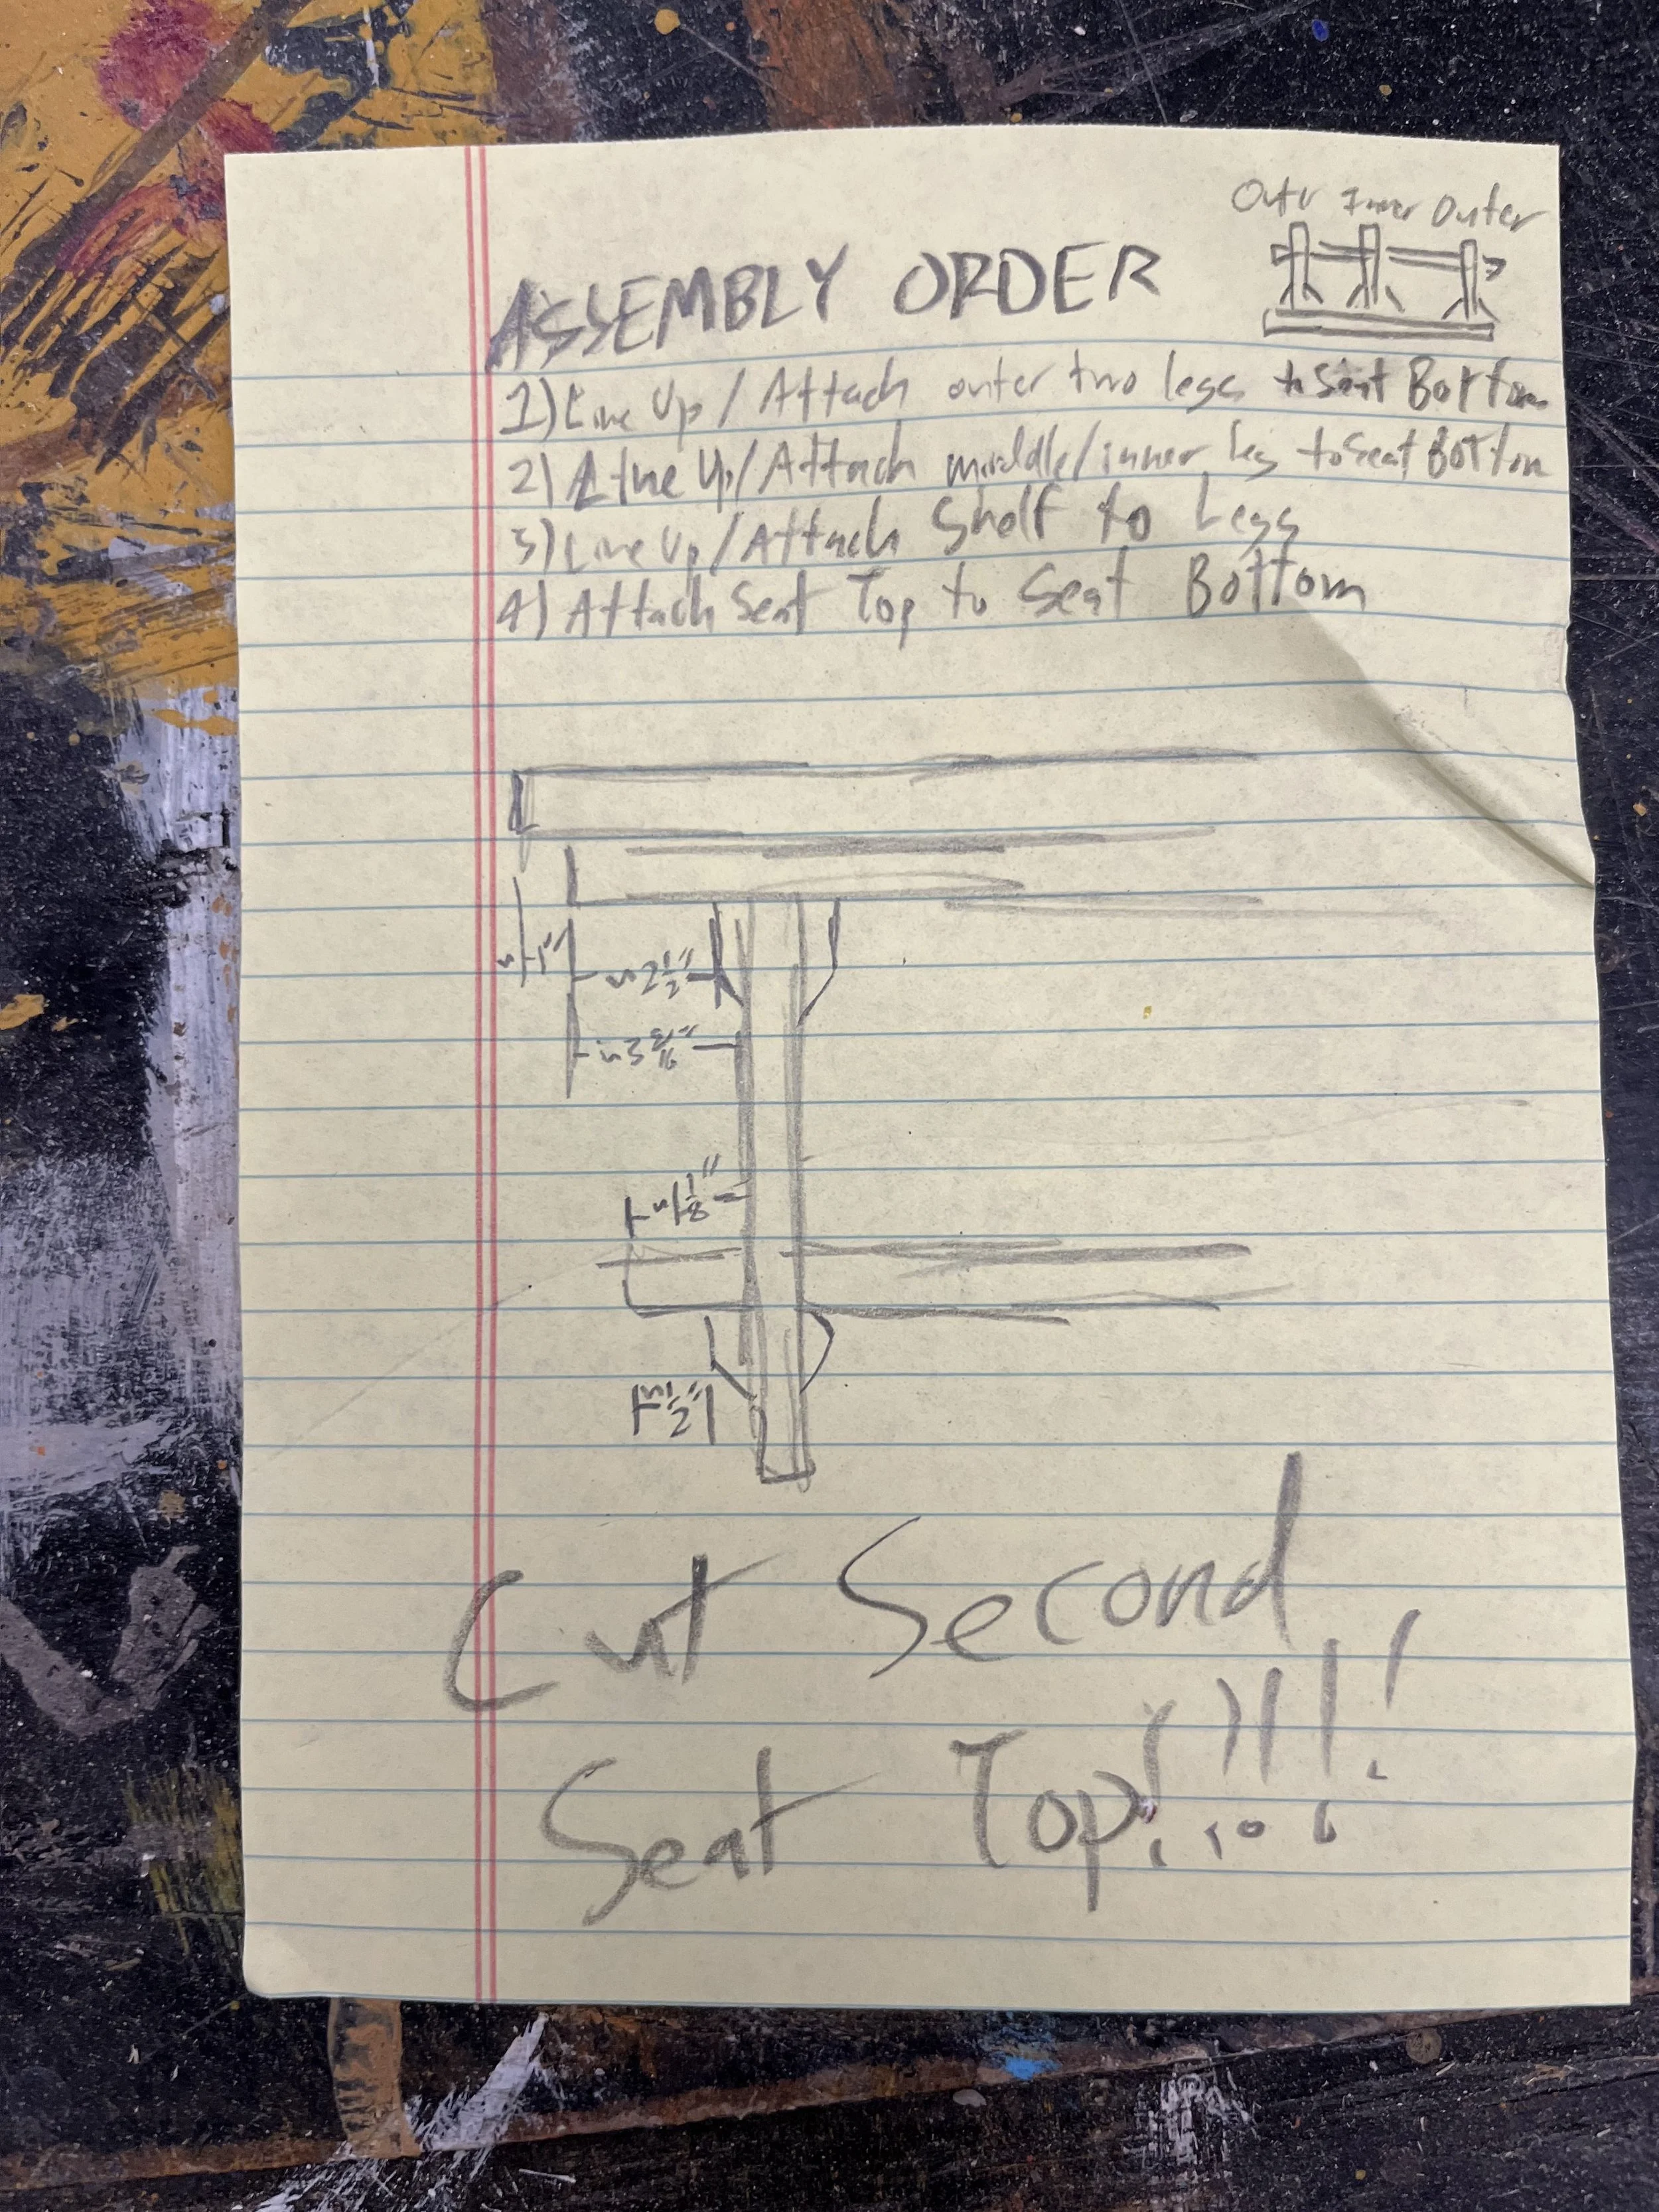 Outer Inner Outer
ASSEMBLY ORDER
1) Line Up / Attach outer two legs to Seat Bottom
2) Line Up / Attach middle/inner leg to Seat Bottom
3) Line Up / Attach Shelf to Legs
4) Attach Seat Top to Seat Bottom
~1"
~2 1/2"
~3 3/16"
1/8"
~1/2"
Cut Second
Seat Top!!!!!